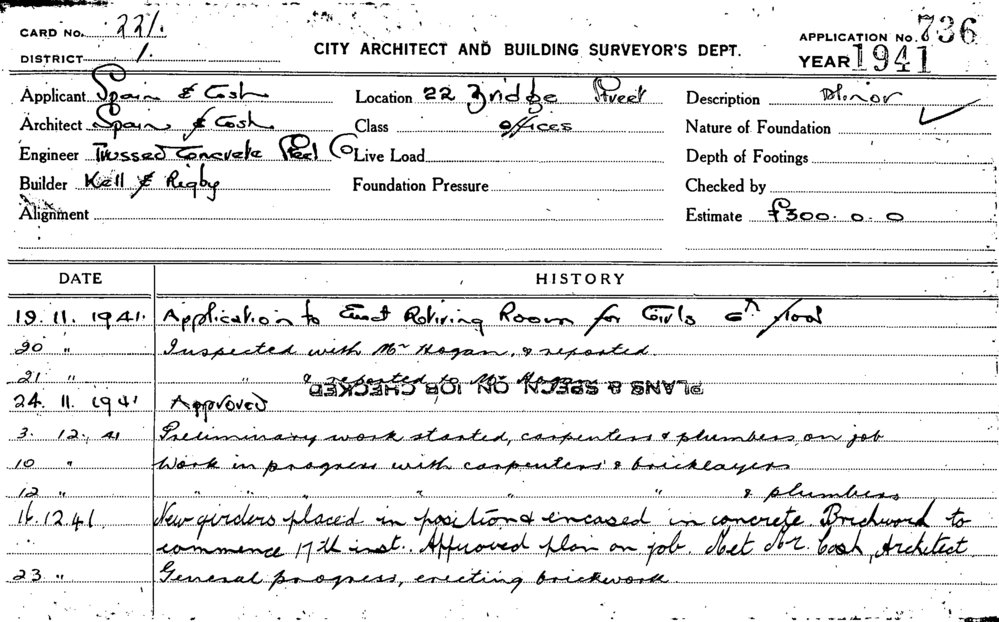 CARD No. 221.
APPLICATION No. 736
DISTRICT 1.
CITY ARCHITECT AND BUILDING SURVEYOR'S DEPT.
YEAR 1941
Applicant Spain & Cosh
Location 22 Bridge Street
Description Minor
Architect Spain & Cosh
Class offices
Nature of Foundation ✓
Engineer Trussed Concrete Steel Co
Live Load
Depth of Footings
Builder Kell & Rigby
Foundation Pressure
Checked by
Alignment
Estimate £300. 0. 0
DATE HISTORY
19. 11. 1941. Application to Erect Retiring Room for Girls 6th floor
20 " Inspected with Mr Hogan, & reported.
21 " " & reported to Mr
PLANS & SPECN ON JOB CHECKED
24. 11. 1941 Approved
3. 12. 41 Preliminary work started, carpenters & plumbers, on job
10 " Work in progress with carpenters & bricklayers
12 " " " " " " & plumbers
16. 12. 41. New girders placed in position & encased in concrete. Brickwork to
commence 17th inst. Approved plan on job. Met Mr. Cosh, Architect
23 " General progress, erecting brickwork.